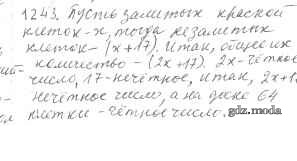 1243. Пусть залитых краской
клеток - x, тогда незалитых
клеток - (x + 17). Итак, общее их
количество - (2x + 17). 2x - чётное
число, 17 - нечётное, итак, 2x + 1
нечётное число, а на доке 64
клетки - чётное число.
gdz.moda